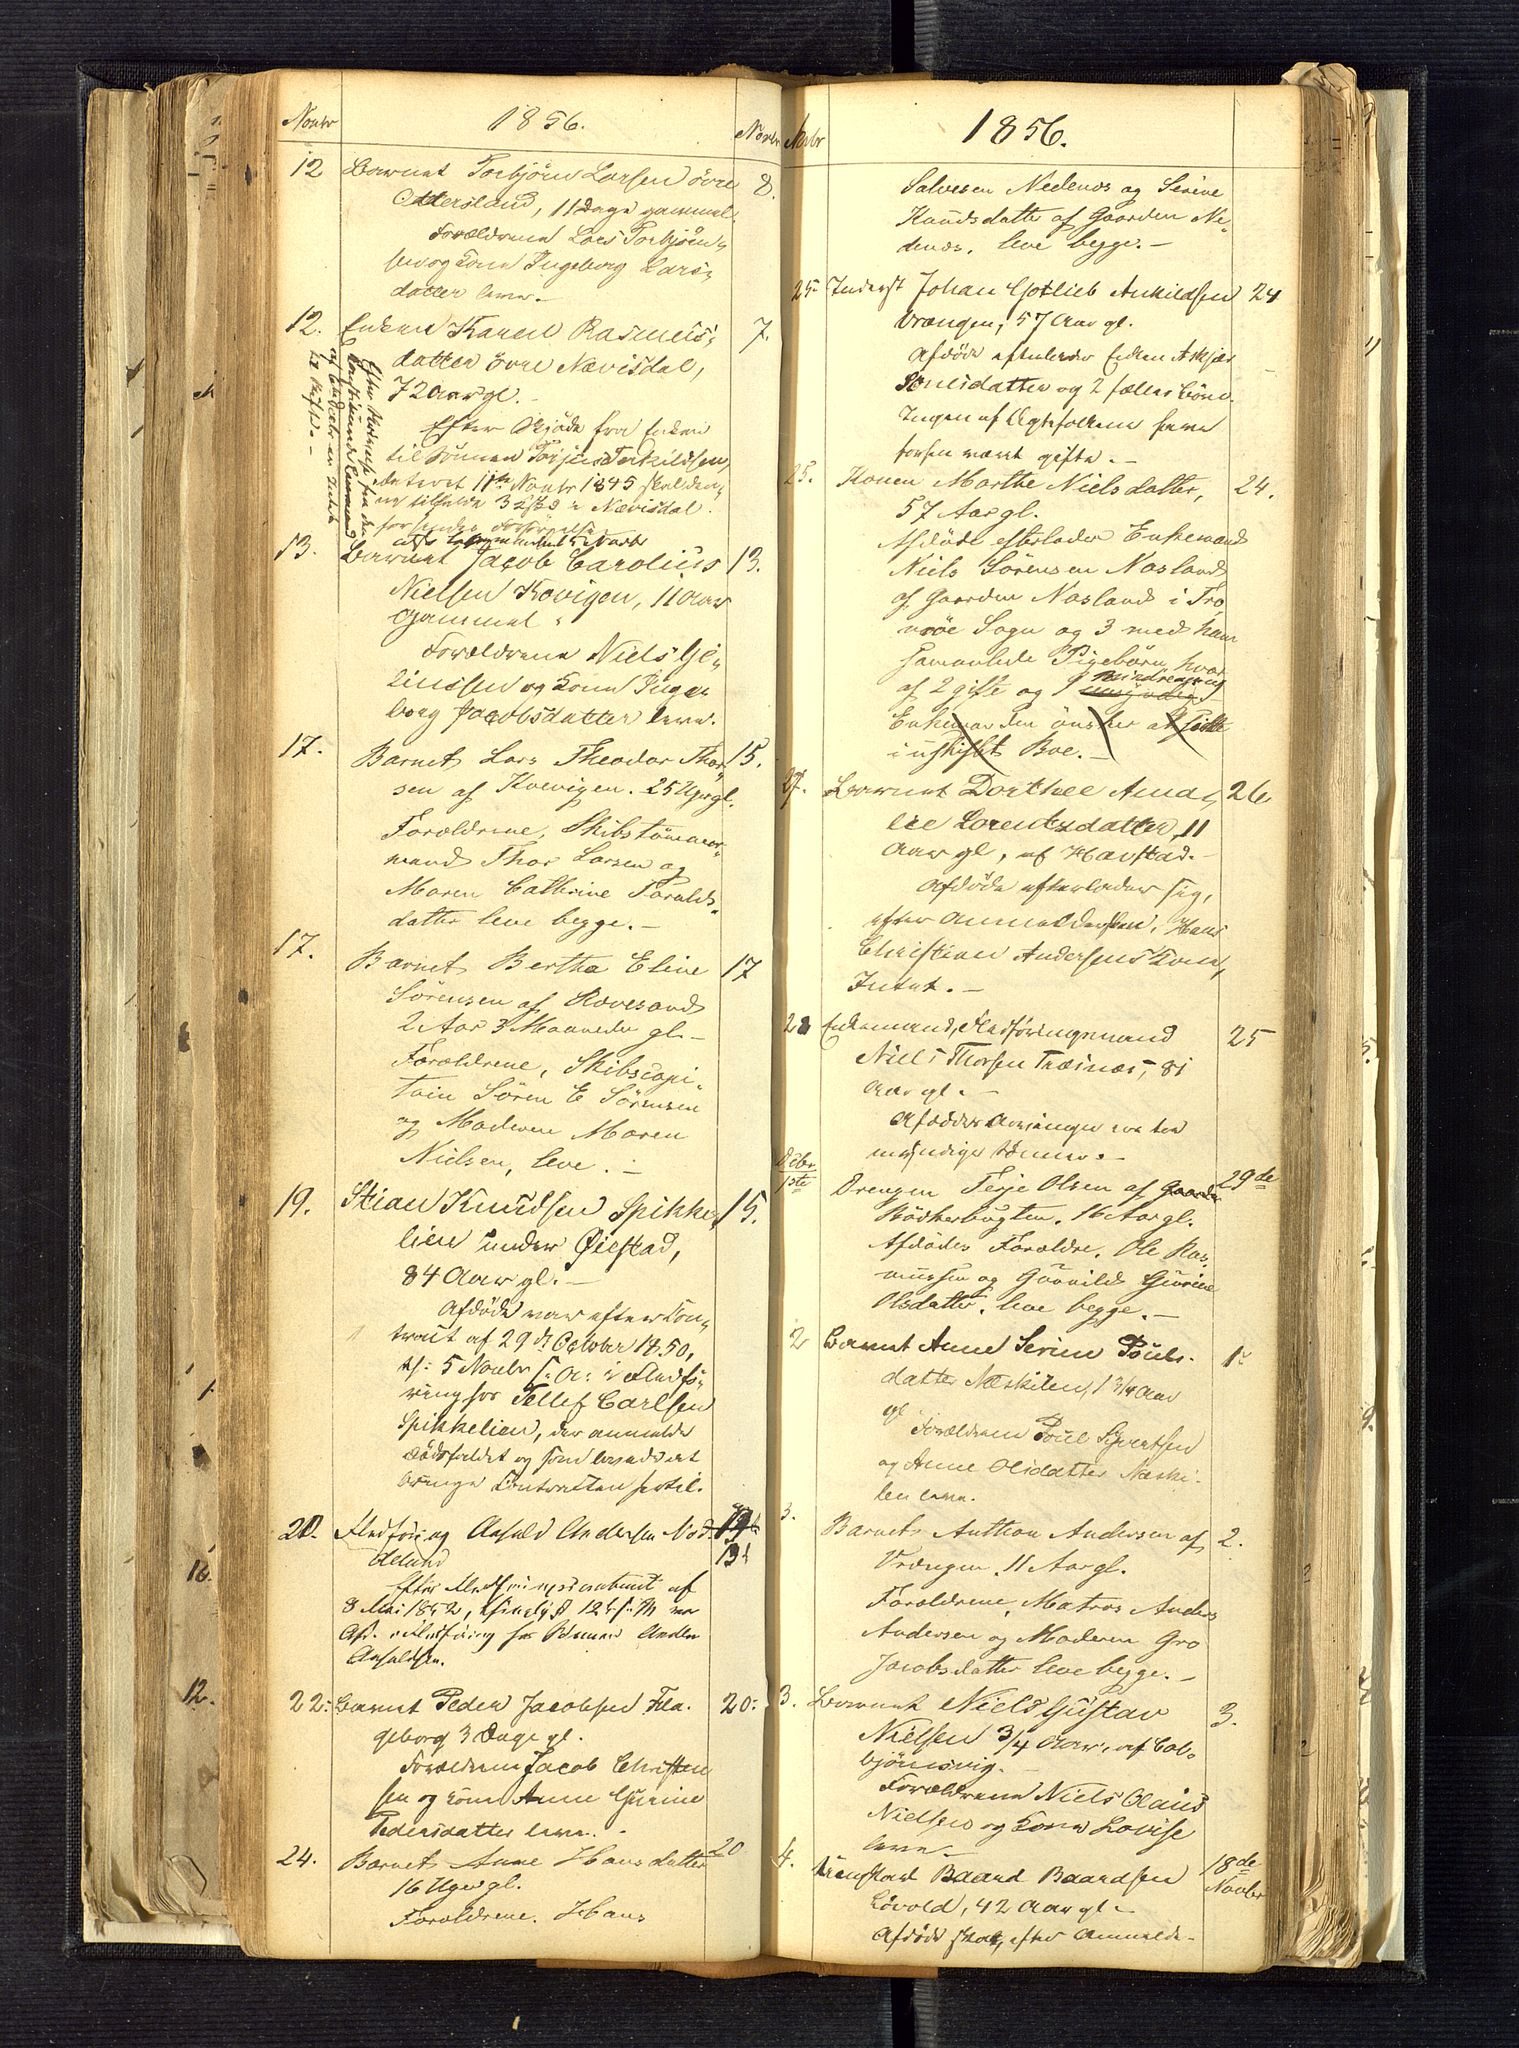 Novbr 1856. Novbr
12 Barnet Torbjörn Larsen övre 8.
Ottersland, 11 Dage gammel.
Forældrene Lars Torbjörn-
sen og Kone Ingeborg Lars-
datter leve.
12. Enken Karen Rasmus- 7.
datter övre Nævisdal,
72 Aar gl.
Efter Skjöde fra Enken
til Sönnen Torjus Terkildsen,
dateret 11te Novbr 1845
13. Barnet Jacob Carolius 13.
Nielsen Kovigen, 11 Aar
gammel.
Forældrene Niels Ge-
liussen og Kone Inge-
borg Jacobsdatter leve.
17. Barnet Lars Theodor Thor- 15.
sen af Kovigen. 25 Uger gl.
Forældrene, Skibstömmer-
mand Thor Larsen og
Maren Cathrine Taralds-
datter leve begge. —
17. Barnet Bertha Eline 17
Sörensen af Revesand
2 Aar 3 Maaneder gl. —
Forældrene, Skibscapi-
tain Sören E Sörensen
og Moderen Maren
Nielsen, leve. —
19. Stian Knudsen Spikke- 15.
lien under Øiestad,
84 Aar gl. —
Afdöde var efter Con-
tract af 29de October 1850,
5 Novbr s. A. i Fledfö-
ring hos Tellef Carlsen
Spikkelien, der anmeldte
Dödsfaldet og som
bringe Contracten
20. Fledföring Aasuld Andersen 13t
Efter Fledföringscontract af
8 Mai 1852, 12t s. M. var
Afd. i Fledföring hos Sönnen Anders
Aasuldsen.
22. Barnet Peder Jacobsen Fla- 20.
geborg 3 Dage gl.
Forældrene Jacob Christen
sen og Kone Anne Gurine
Pedersdatter leve. —
24. Barnet Anne Hansdatter 20
16 Uger gl.
Forældrene. Hans
Novbr 1856.
Salvesen Nedenes og Serine
Knudsdatter af Gaarden Ne-
denes, leve begge. —
25 Inderst Johan Gotlieb Ankildsen 24
Vrængen, 57 Aar gl.
Afdöde efterlader Enken Askjer
Poulsdatter og 2 fælles Börn.
Ingen af Ægtefolkene have
forhen været gifte. —
25. Konen Marthe Nielsdatter, 24.
57 Aar gl.
Afdöde efterlader Enkemand
Niels Sörensen Nasland
af Gaarden Nasland i Tro-
möe Sogn og 3 med ham
sammenavlede Pigebörn, hvor
af 2 gifte og 1 mindreaarig
Enkemanden önsker at sidde
i uskiftet Boe. —
27. Barnet Dorthee Ama- 26
lie Lorentsdatter, 11
Aar gl, af Havstad. —
Afdöde efterlader sig,
efter Anmeldelsen, Hans
Christian Andersens Kone,
Intet. —
28 Enkemand, Fledföringsmand 25
Niels Thorsen Træinæs, 81
Aar gl. —
Afdödes Arvinger ere
myndige Sönner. —
Debr
1ste Drengen Terje Olsen af Gaarden 29de
Bödkerbugten. 16 Aar gl.
Afdödes Forældre, Ole Ras-
mussen og Gunnild Gurine
Olsdatter, leve begge. —
2 Barnet Anne Serine Pouls- 1.
datter Neskilen, 1 3/4 Aar
gl
Forældrene Poul Syvertsen
og Anne Olsdatter Neski-
len leve.
3. Barnet Anthon Andersen af 2.
Vrængen. 11 Aar gl.
Forældrene, Matros Anders
Andersen og Moderen Gro
Jacobsdatter leve begge. —
3. Barnet Niels Gustav 3.
Nielsen 3/4 Aar, af Col-
björnsvig. —
Forældrene Niels Olaus
Nielsen og Kone Lovise
leve —
4. Baard Baardsen 18de Novbr
Lövold, 42 Aar gl —
Afdöde skal, efter Anmelde-